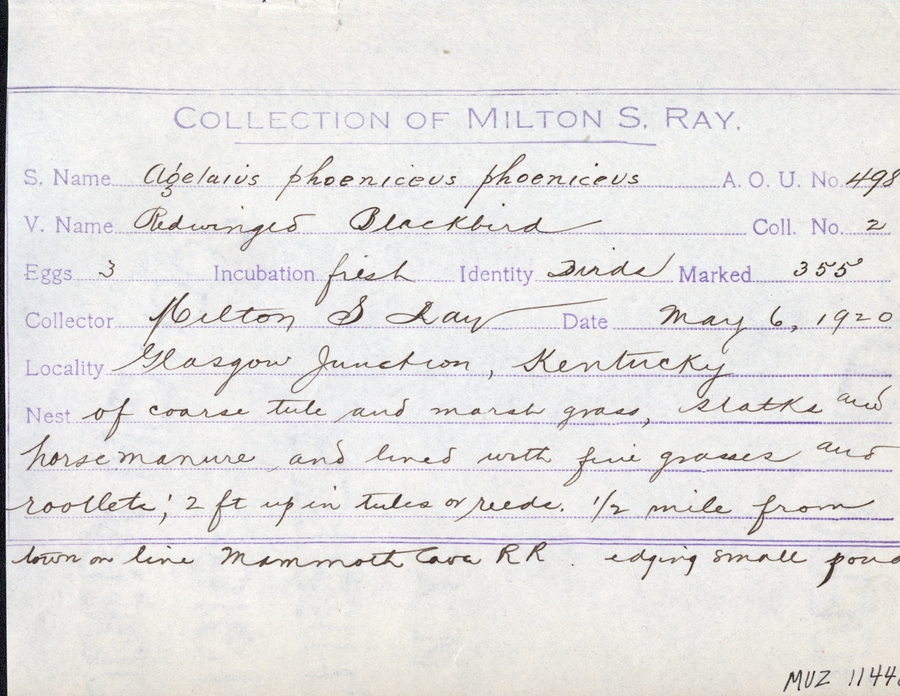 COLLECTION OF MILTON S. RAY.
S. Name Agelaius phoeniceus phoeniceus A. O. U. No. 498
V. Name Redwinged Blackbird Coll. No. 2
Eggs 3 Incubation fresh Identity Birds Marked 355
Collector Milton S Ray Date May 6, 1920
Locality Glasgow Junction, Kentucky
Nest of coarse tule and marsh grass, stalks and
horse manure and lined with fine grasses and
rootlets; 2 ft up in tules or reeds. 1/2 mile from
town on line Mammoth Cave RR. edging small pond
MVZ 1144